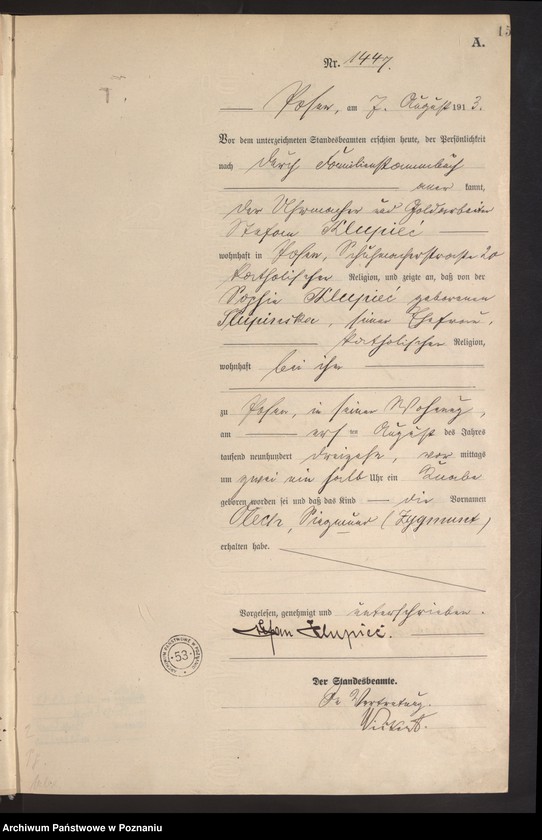 15
A.
Nr. 1447.
Posen, am 7. August 1913.
Vor dem unterzeichneten Standesbeamten erschien heute, der Persönlichkeit
nach durch Familienstammbuch
aner kannt,
der Uhrmacher und Goldarbeiter
Stefan Klupieć
wohnhaft in Posen, Schuhmacherstraße 20
katholischer Religion, und zeigte an, daß von der
Sophie Klupieć geborenen
Slupinska, seiner Ehefrau,
katholischer Religion,
wohnhaft bei ihm
zu Posen, in seiner Wohnung,
am ersten August des Jahres
tausend neunhundert dreizehn, vor mittags
um zwei ein halb Uhr ein Knabe
geboren worden sei und daß das Kind die Vornamen
Olech, Siegmund (Zygmunt)
erhalten habe.
Vorgelesen, genehmigt und unterschrieben.
Stefan Klupieć.
ARCHIWUM PAŃSTWOWE W POZNANIU
53
Der Standesbeamte.
In Vertretung.
Archiwum Państwowe w Poznaniu